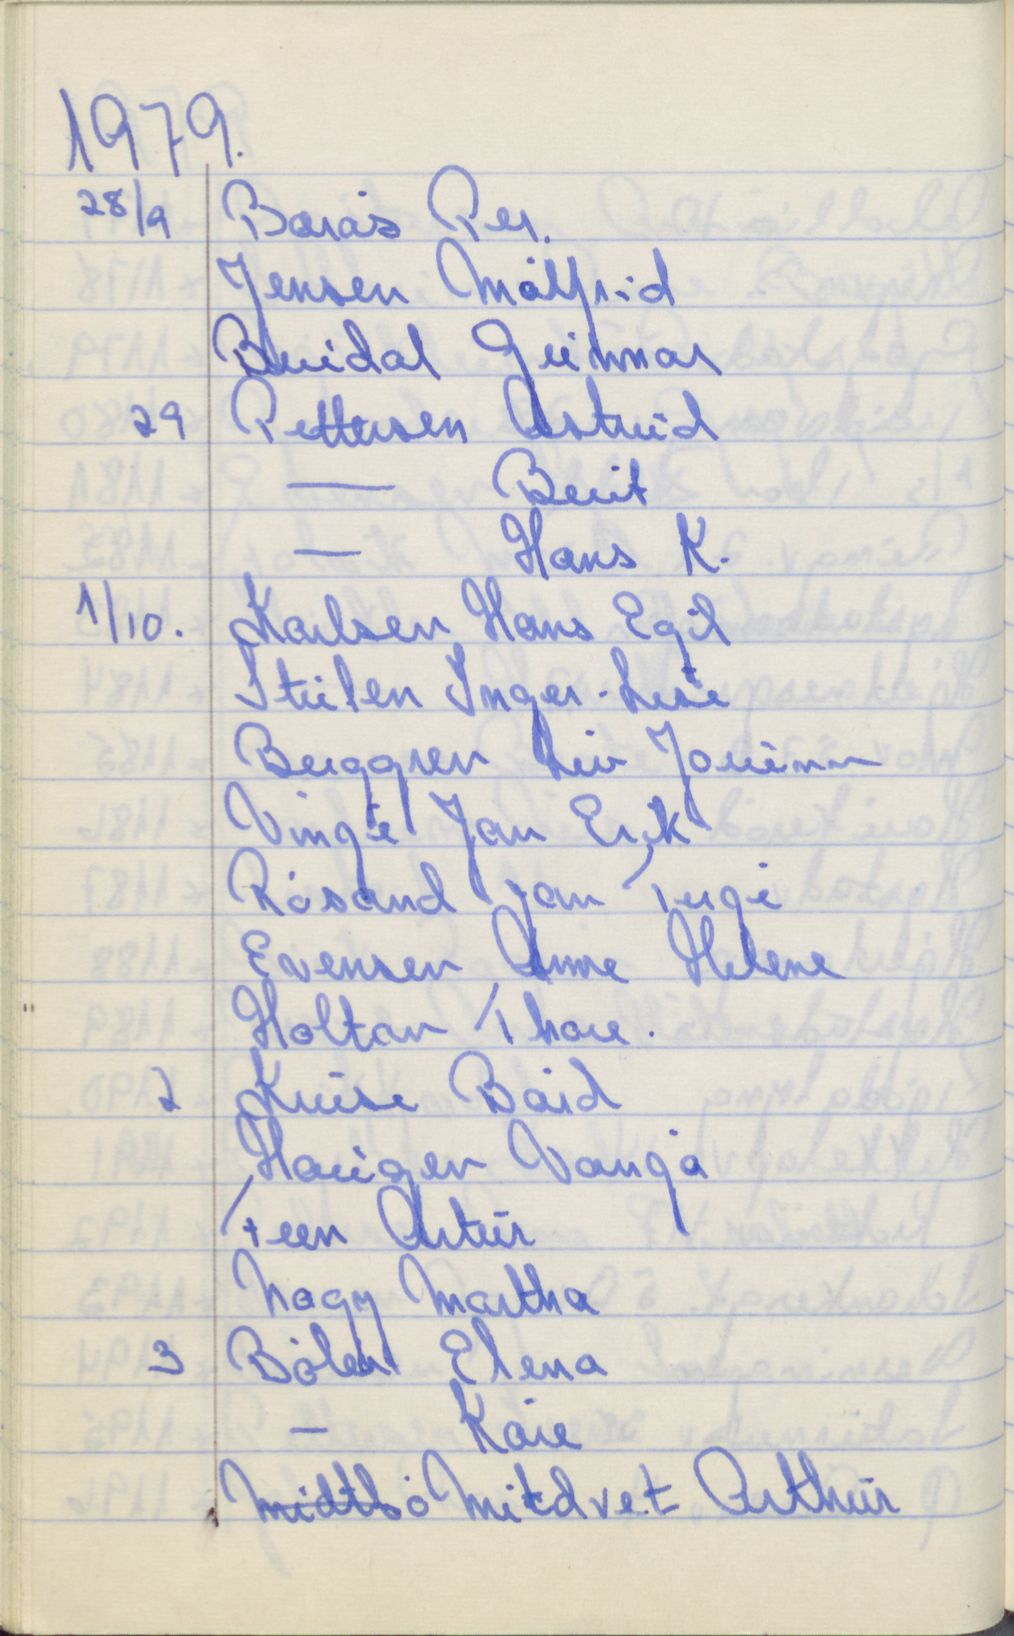 1979.
28/9 Borås Per.
Jensen Målfrid
Bureidal Gunnar
29 Pettersen Astrid
— Berit
— Hans K.
1/10. Karlsen Hans Egil
Inger-Lise
Berggren Liv Jorunn
Vinge Jan Erik
Råsand Jan Terje
Evensen Anne Helene
Holtan Thore.
2 Kruse Bård
Haugen Vanja
Teen Artur
Nagy Martha
3 Bölen Elena
— Kåre
Midtbö Mitdvet Arthur